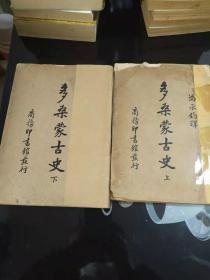 多桑蒙古史
下
商務印書館發行
馮承鈞譯
多桑蒙古史
上
商務印書館發行